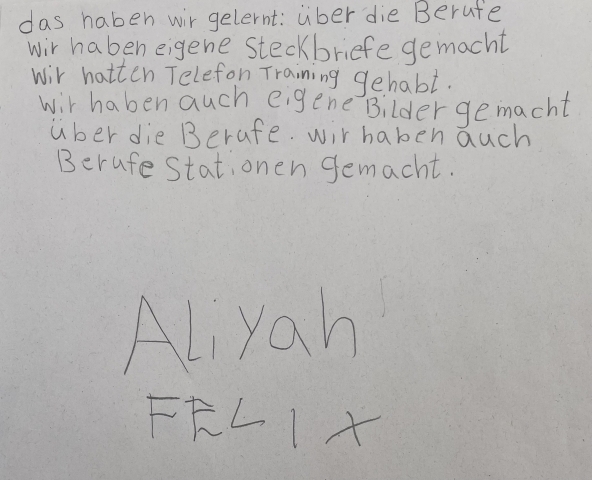 das haben wir gelernt: über die Berufe
wir haben eigene Steckbriefe gemacht
wir hatten Telefon Training gehabt.
wir haben auch eigene Bilder gemacht
über die Berufe. wir haben auch
Berufe Stationen gemacht.
Aliyah
FELIX